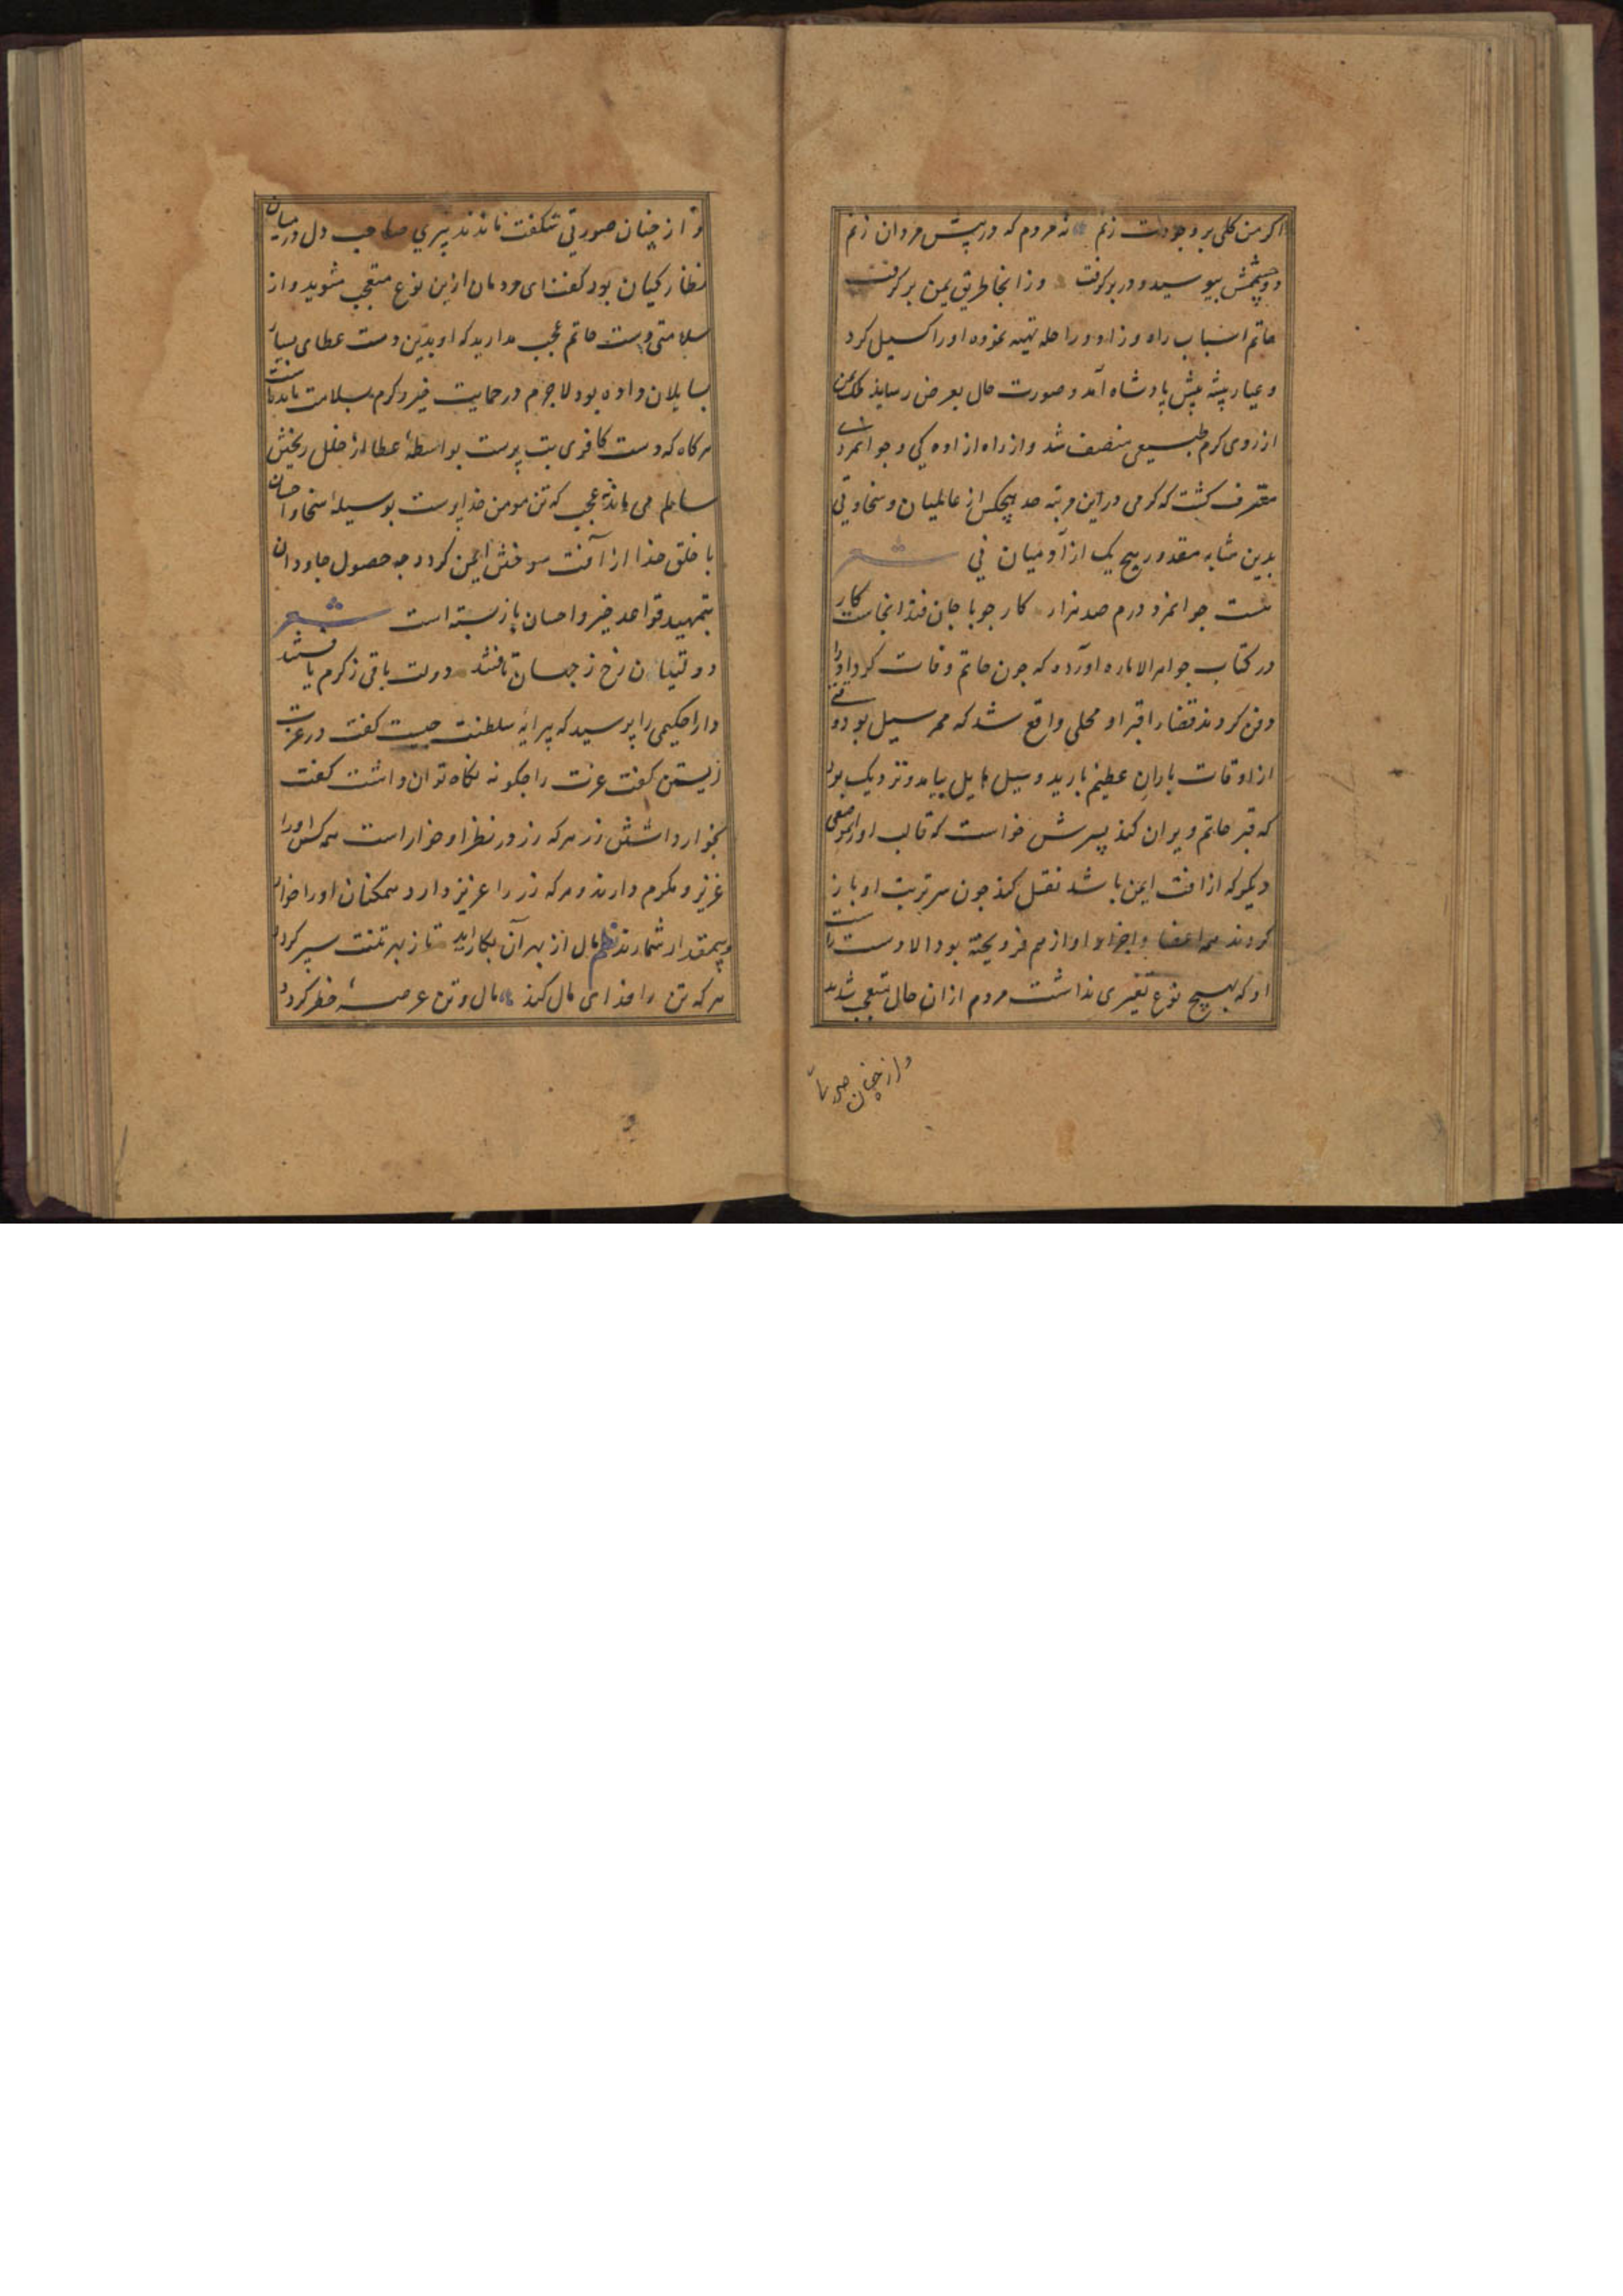 اکر من کلی بر وجودت زنم نه مردم که در پیش مردان زنم
دو چشمش ببوسید و در بر گرفت وز انجا طریق یمن بر گرفت
حاتم اسباب راه و زاد و راحله تهیه نموده او را کسیل کرد
و عیار پیشه پیش پادشاه آمد و صورت حال بعرض رسانید ملک یمن
از روی کرم طبیعی منصف شد و از راه ازاده کی و جوانمردی
معترف کشت که کرمی در این مرتبه حد هیچکس از عالمیان و سخاوتی
بدین مثابه مقدور هیچ یک از آدمیان نی شعر
هست جوانمرد درم صد هزار کار جو با جان فتد انجاست کار
در کتاب جواهر الاماره اورده که جون حاتم وفات کرد او را
دفن کردند قضا را قبر او محلی واقع شد که ممر سیل بود وقتی
از اوقات باران عظیم بارید و سیل هایل بیامد و نزدیک بود
که قبر حاتم ویران کند پسرش خواست که قالب او را بموضعی
دیکر که از افت ایمن باشد نقل کند جون سر تربت او باز
کردند همه اعضا و اجزاء او از هم فرو ریخته بود الا دست راست
او که بهیچ نوع تغیری نداشت مردم ازان حال متعجب شدند
و از چنان صورتی
و از چنان صورتی شکفت ماندند پیری صاحب دل در میان
نظارکیان بود کفت ای مردمان ازین نوع متعجب مشوید و از
سلامتی دست حاتم عجب مدارید که او بدین دست عطای بسیار
بسایلان داده بود لاجرم در حمایت خیر و کرم بسلامت مانده است
هر کاه که دست کافری بت پرست بواسطهٔ عطا از خلل ریختن
سالم می ماند چه عجب که تن مومن خداپرست بوسیله سخا و احسان
با خلق خدا از آفت سوختن ایمن کردد جه حصول جاودان
بتمهید قواعد خیر و احسان باز بسته است شعر
دولتیان رخ ز جهان تافتند دولت باقی ز کرم یافتند
دارا حکیمی را پرسید که پیرایهٔ سلطنت جیست کفت در عزت
زیستن کفت عزت را جکونه نکاه توان داشت کفت
بخوار داشتن زر هر که زر در نظر او خوار است همه کس او را
عزیز و مکرم دارند و هر که زر را عزیز دارد همکنان او را خوار
و بیمقدار شمارند نظم مال از بهر آن بکار اید تا ز بهر تنت سپر کردد
هر که تن را فدای مال کند مال و تن عرصهٔ خطر کردد